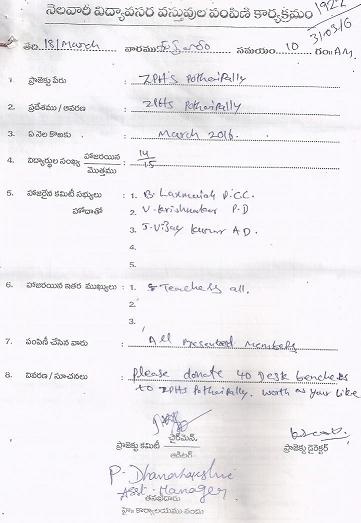 నెలవారీ విద్యావసర వస్తువుల పంపిణి కార్యక్రమం
31/03/16
తేది. 18/March వారము సమయం. 10 గం॥ A.M.
1. ప్రాజెక్టు పేరు : ZPHS Pothaipally
2. ప్రదేశము / ఆవరణ : ZPHS Pothaipally
3. ఏ నెల కొఱకు : March 2016.
4. విద్యార్థుల సంఖ్య హాజరయిన / మొత్తము : 14 / 15
5. హాజరైన కమిటీ సభ్యులు : 1. B. Laxmaiah P.C.C.
హోదాతో 2. V. Krishnakar P.D
3. J. Vijay Kumar A.D.
4.
5.
6. హాజరయిన ఇతర ముఖ్యులు : 1. & Teachers all.
2.
3.
7. పంపిణీ చేసిన వారు : All presented members
8. వివరణ / సూచనలు : please donate 40 Desk benches
to ZPHS Pothaipally. worth as your like
ప్రాజెక్టు కమిటీ ఛైర్మెన్. ప్రాజెక్టు డైరెక్టర్
ఆడిటర్
Asst. Manager
తనిఖీదారు
హెచ్‌ కార్యాలయము నందు